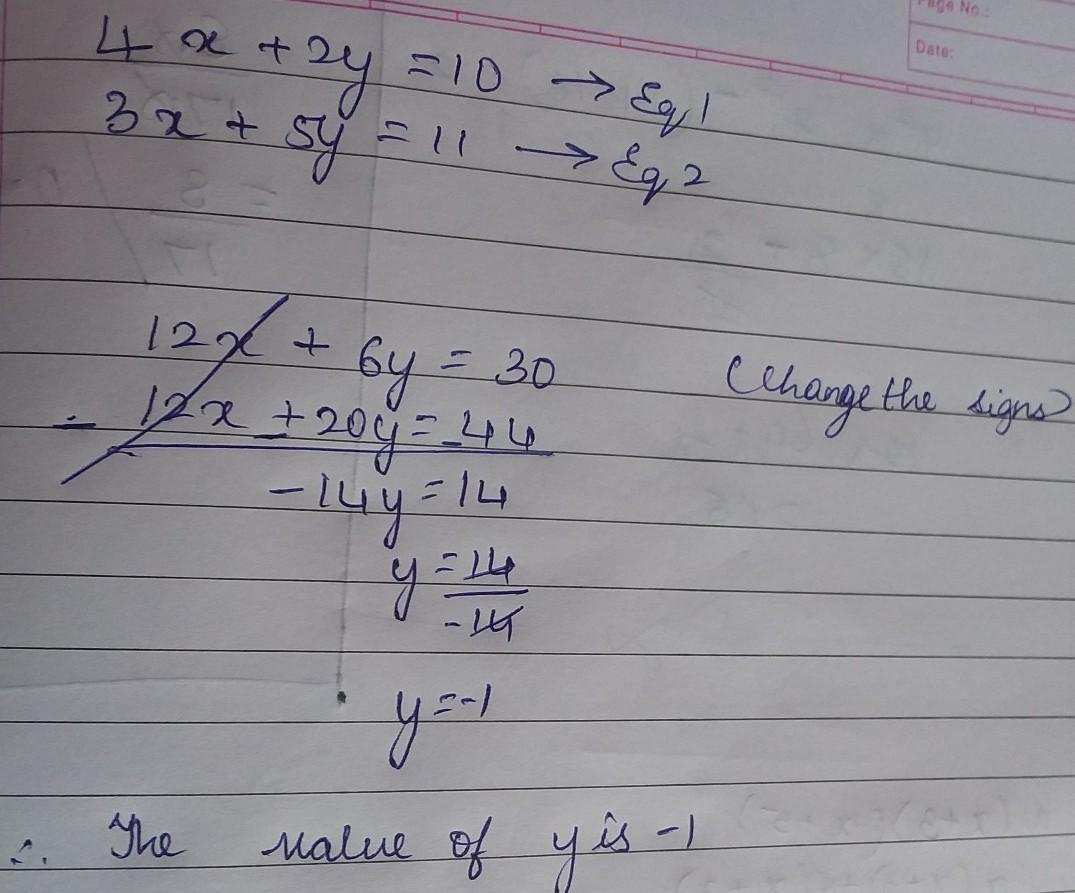 Page No.:
Date:
4x + 2y = 10 → Eq 1
3x + 5y = 11 → Eq 2
12x + 6y = 30 (Change the signs)
- 12x + 20y = 44
- -
-14y = 14
y = 14
-14
y = -1
∴ The value of y is -1